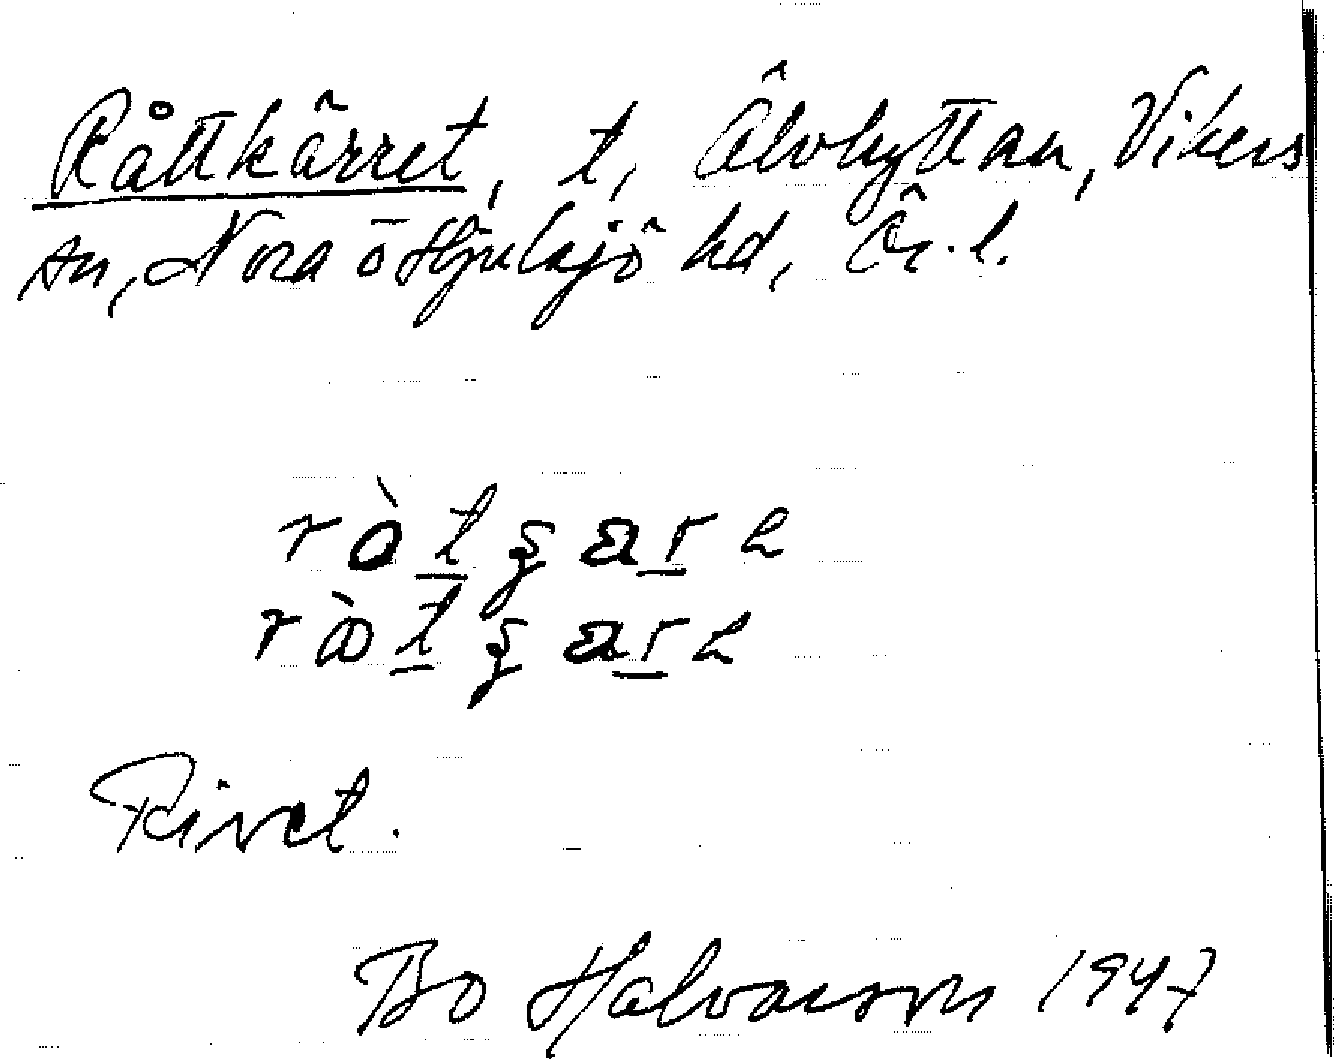 Råttkärret, t, Älvhyttan, Vikers
sn, Nora o Hjulsjö hd, Ör. l.
Rivet.
Bo Halvarson 1947